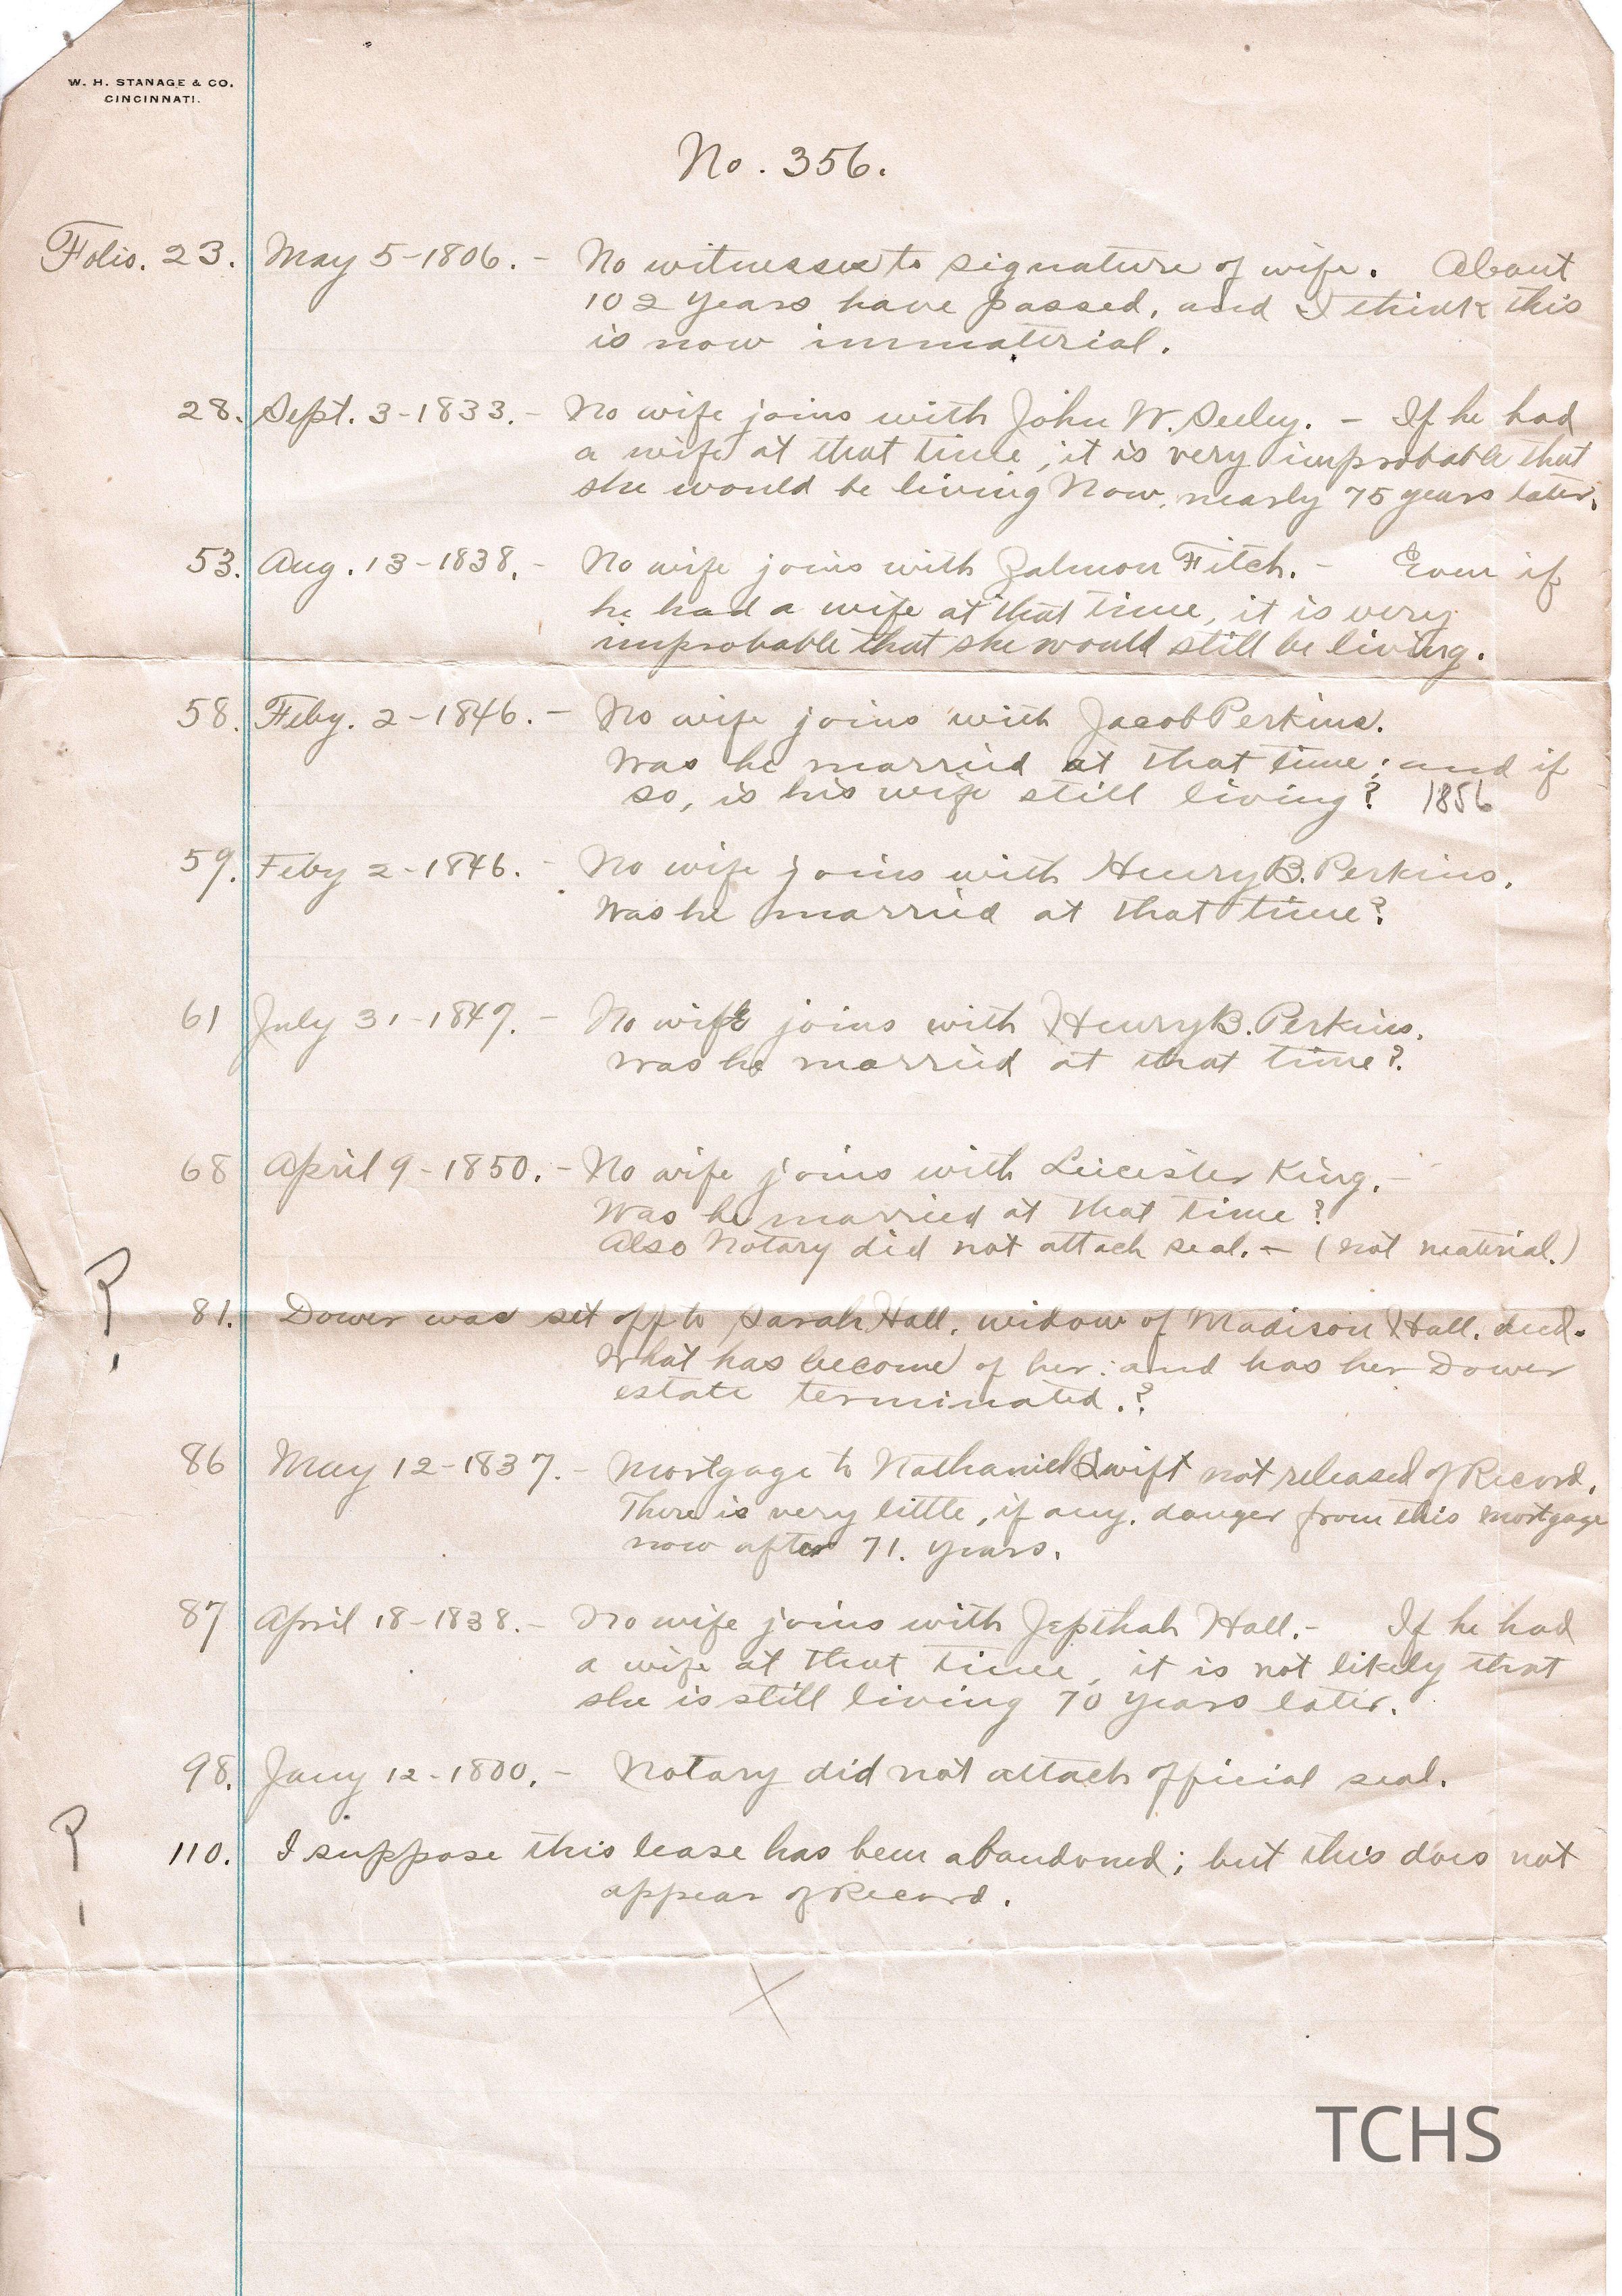 W. H. STANAGE & CO.
CINCINNATI.
No. 356.
Folio. 23. May 5-1806. - No witnesses to signature of wife. About
102 years have passed, and I think this
is now immaterial.
28. Sept. 3-1833. - No wife joins with John W. Seeley. - If he had
a wife at that time, it is very improbable that
she would be living Now, nearly 75 years later.
53. Aug. 13-1838. - No wife joins with Zalmon Fitch. - Even if
he had a wife at that time, it is very
improbable that she would still be living.
58. Feby. 2-1846. - No wife joins with Jacob Perkins.
Was he married at that time; and if
so, is his wife still living? 1856
59. Feby 2-1846. - No wife joins with Henry B. Perkins.
Was he married at that time?
61 July 31-1847. - No wife joins with Henry B. Perkins.
Was he married at that time?
68 April 9-1850. - No wife joins with Leicester King. -
Was he married at that time?
Also Notary did not attach seal. - (not material.)
? 81. Dower was set off to Sarah Hall, widow of Madison Hall, decd.
What has become of her: and has her Dower
estate terminated.?
86 May 12-1837. - Mortgage to Nathaniel Swift not released of Record.
There is very little, if any, danger from this mortgage
now after 71. years.
87 April 18-1838. - No wife joins with Jepthah Hall. - If he had
a wife at that time, it is not likely that
she is still living 70 years later.
98. Jany 12-1800. - Notary did not attach official seal.
? 110. I suppose this lease has been abandoned; but this does not
appear of Record.
X
TCHS